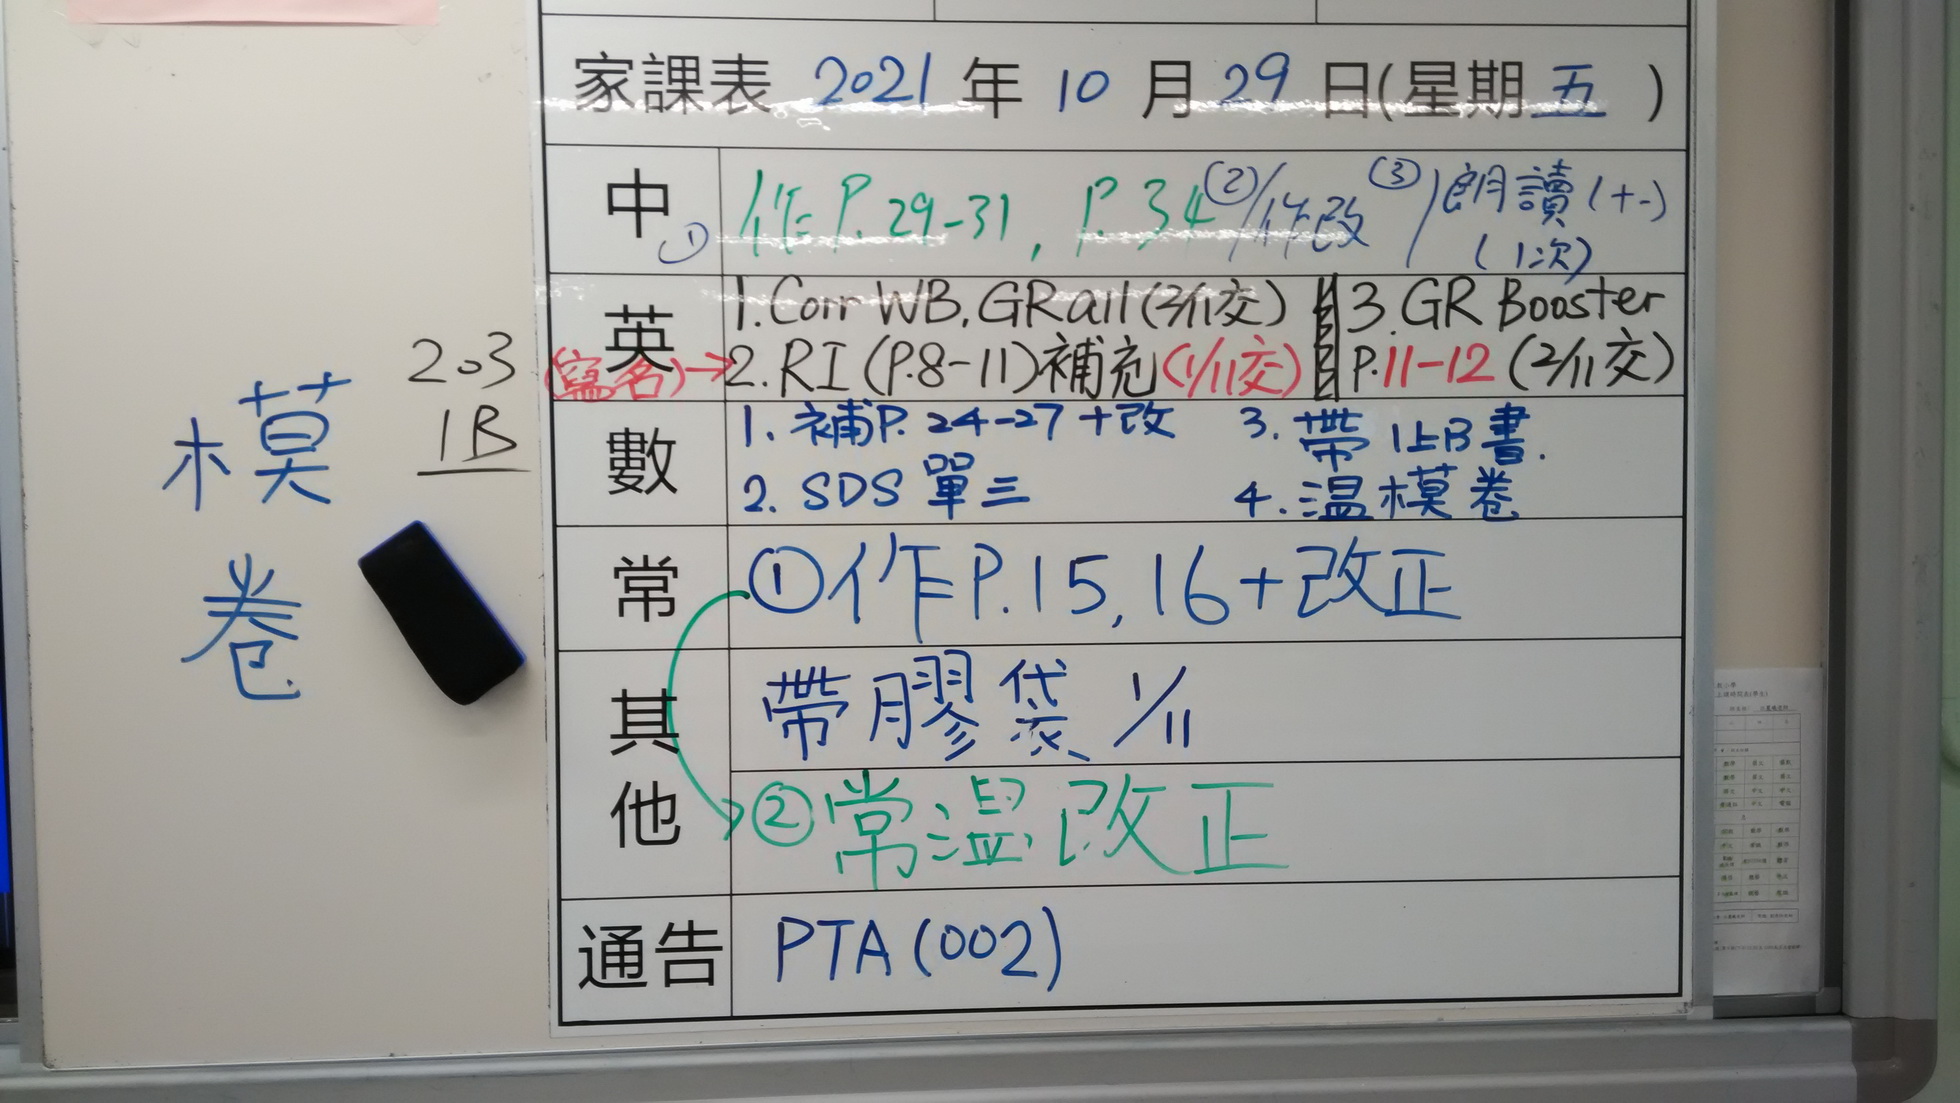 家課表 2021 年 10 月 29 日(星期五)
中 ① 作P.29-31, P.34 ②/作改 ③/朗讀(十一)
(1次)
英 1.Corr WB,GRall(2/11交) 3.GR Booster
(寫名)→2.RI(P.8-11)補充(1/11交) P.11-12(2/11交)
數 1.補P.24-27+改 3.帶1上B書.
2.SDS單三 4.温模卷
常 ①作P.15,16+改正
其他 帶膠袋 1/11
②常温改正
通告 PTA(002)
203
1B
模
卷